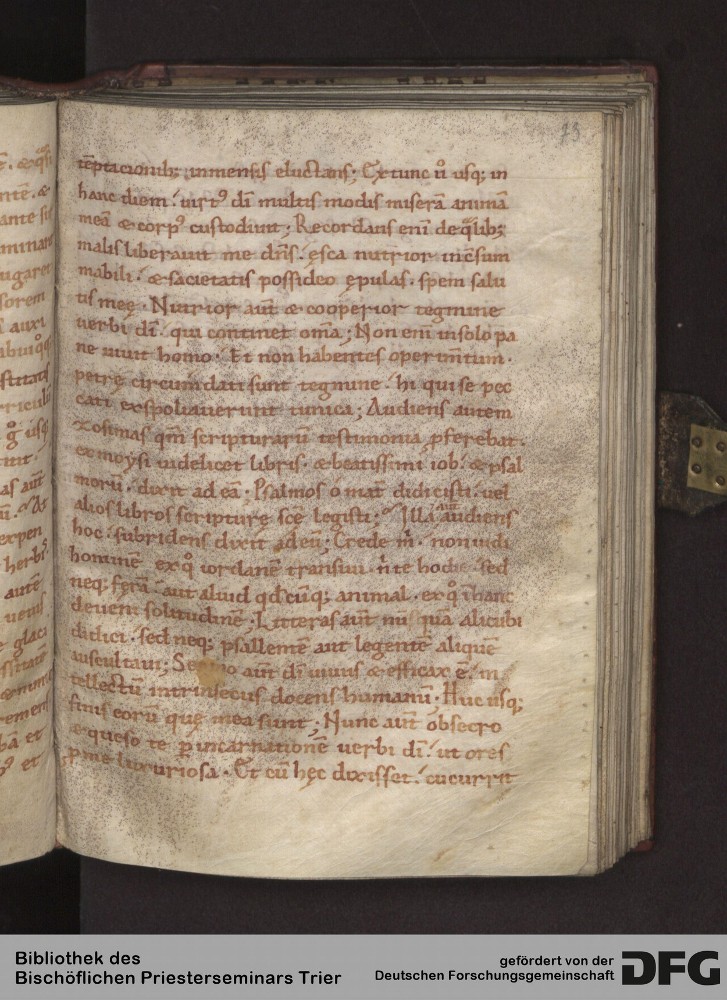 23
te͞ptacionib; inmensis eluctans; Extunc ů usq; in
hanc diem. uirtꝰ dī multis modis miserā animā
meā & corpꝰ custodiuit; Recordans enī de q̄lib;
malis liberauit me dn̄s. esca nutrior incōsum
mabili. & sacietatis possideo ępulas. spem salu
tis meę. Nutrior aūt & cooperior tegmine
uerbi dī. qui continet om̄a; Non enī in solo pa
ne uiuit homo. Et non habentes operim̄tum.
petrę circumdati sunt tegmine. hi qui se pec
cati exspoliauerunt tunica; Audiens autem
zosimas qm̄ scripturarū testimonia ꝓferebat.
ex moysi uidelicet libris. & beatissimi iob. & psal
morū. dixit ad eā; Psalmos o mat̄ didicisti. uel
alios libros scripturę scē legisti; Illa aūt audiens
hoc. subridens dixit ad eū; Crede m̄. non uidi
hominē ex qͦ iordanē transiui. n̄ te hodie. sed
neq; ferā. aut aliud qd̄cūq; animal. ex qͦ in hanc
deueni solitudinē. Litteras aūt nusquā alicubi
didici. sed neq; psallentē aut legentē aliquē
auscultaui; Sermo aūt dī uiuus & efficax ē. in
tellectū intrinsecus docens humanū. Huc usq;
finis eorū quę mea sunt; Nunc aūt obsecro
& queso te ꝑ incarnationē uerbi dī. ut ores
ꝓ me luxuriosa. Et cū hęc dixisset. cucurrit
Bibliothek des
Bischöflichen Priesterseminars Trier
gefördert von der
Deutschen Forschungsgemeinschaft
DFG